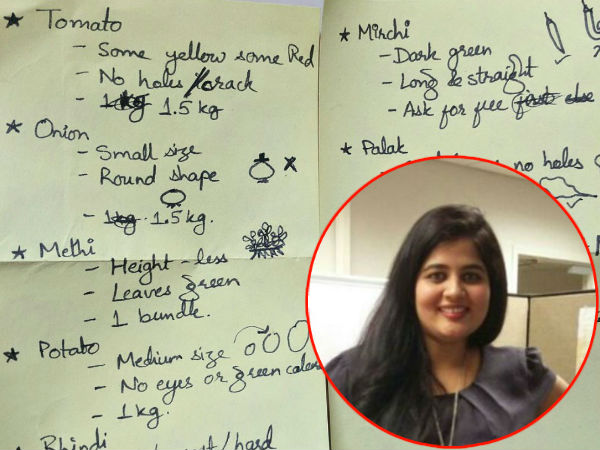 ★ Tomato
- Some yellow some Red
- No holes / crack
- 1.5 kg
★ Onion
- Small size
- Round shape
- 1.5 kg.
★ Methi
- Height - less
- Leaves green
- 1 bundle.
★ Potato
- Medium size
- No eyes or green
- 1 kg.
Bhindi
hard
★ Mirchi
- Dark green
- Long & straight
- Ask for free
★ Palak
no holes